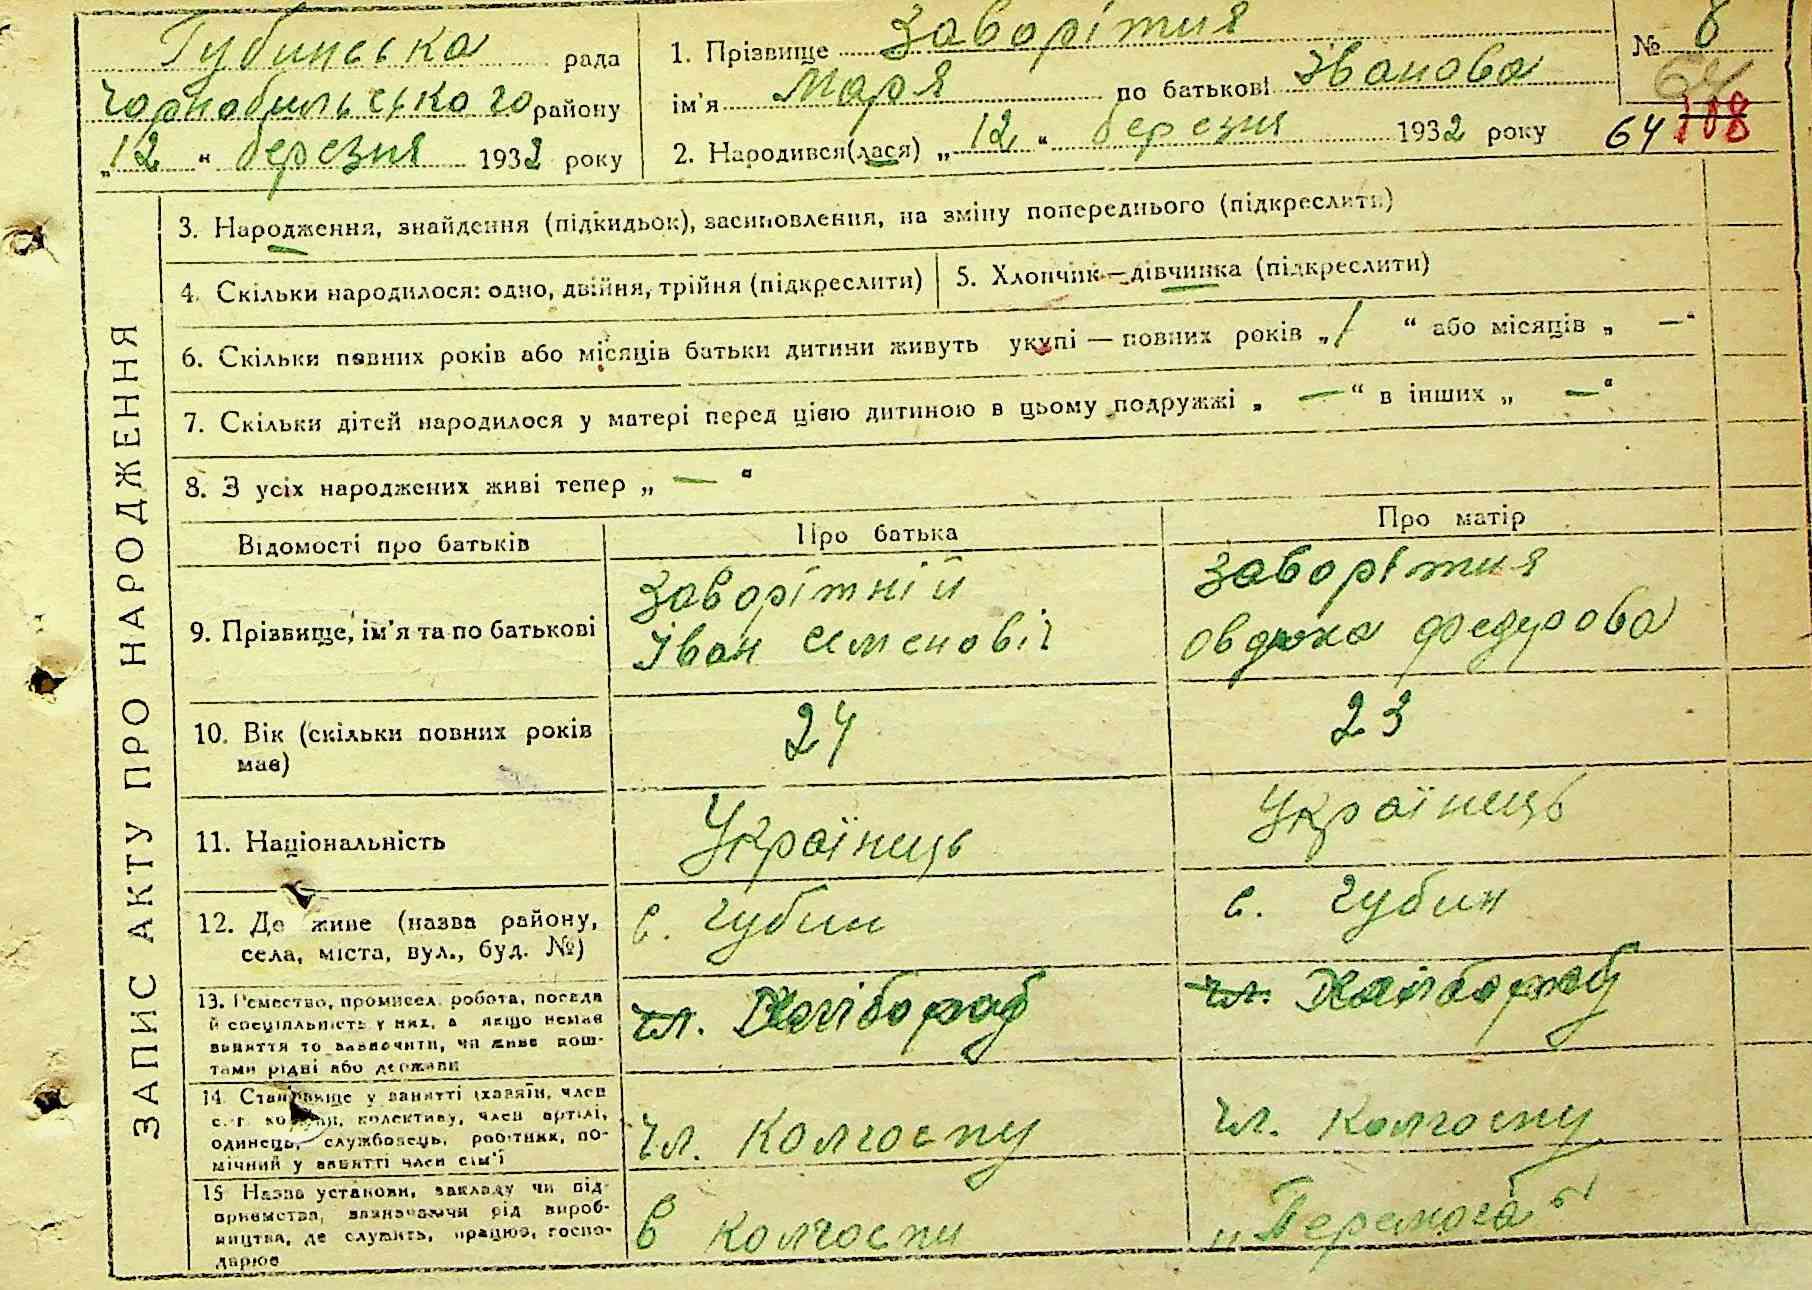 Губинська рада
Чорнобильського району
„12“ березня 1932 року
1. Прізвище Заворітня
ім'я Марія по батькові Іванова
2. Народився(лася) „12“ березня 1932 року
№ 8
64
64 108
ЗАПИС АКТУ ПРО НАРОДЖЕННЯ
3. Народження, знайдення (підкидьок), засиновлення, на зміну попереднього (підкреслити)
4. Скільки народилося: одно, двійня, трійня (підкреслити)
5. Хлопчик — дівчинка (підкреслити)
6. Скільки повних років або місяців батьки дитини живуть укупі — повних років „1“ або місяців „—“
7. Скільки дітей народилося у матері перед цією дитиною в цьому подружжі „—“ в інших „—“
8. З усіх народжених живі тепер „—“
Відомості про батьків
Про батька
Про матір
9. Прізвище, ім'я та по батькові
Заворітній
Іван Семеновіч
Заворітня
Овдюха Федурова
10. Вік (скільки повних років
має)
24
23
11. Національність
Українець
Українець
12. Де живе (назва району,
села, міста, вул., буд. №)
с. Губин
с. Губин
13. Ремество, промисел, робота, посада
й спеціяльність у них, а якщо немає
заняття то зазначити, чи живе кош-
тами рідні або держави
чл. Хлібороб
чл. Хлібороб
14. Становище у занятті (хазяїн, член
с.-г. комуни, колективу, член артілі,
одинець, службовець, робітник, по-
мічний у занятті член сім'ї
чл. колгоспу
чл. колгоспу
15 Назва установи, закладу чи під-
приємства, зазначаючи рід вироб-
ництва, де служить, працює, госпо-
дарює
в колгоспи
„Перемога“